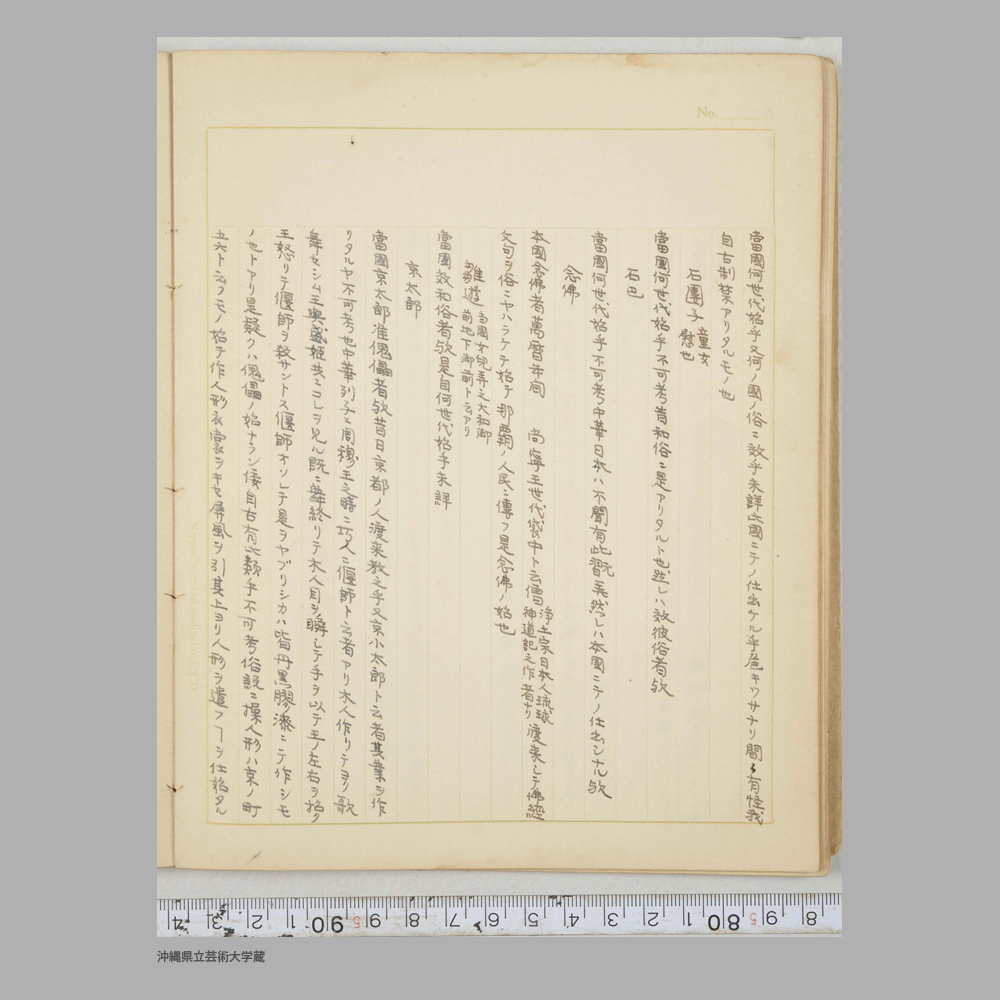 No.
當國何世代始乎又何ノ國ノ俗ニ效乎未詳此國ニテノ仕出ケル乎危キワサナリ間々有怪我
自古制禁アリタルモノ也
石團子 童女慰也
當國何世代始乎不可考昔和俗ニ是アリタルト也然レハ效彼俗者歟
石巴
當國何世代始乎不可考中華日本ハ不聞有此翫 然ラハ本國ニテノ仕出シナル歟
念佛
本國念佛者萬曆年間 尚寧王世代袋中ト云僧 浄土宗日本人琉球神道記之作者ナリ 渡来シテ佛經
文句ヲ俗ニヤハラケテ始テ那覇ノ人民ニ傳フ是念佛ノ始也
雛遊 当國女児弄之大和御前地下御前ト云アリ
當國效和俗者歟是自何世代始乎未詳
京太郎
當國京太郎准傀儡者歟昔日京都ノ人渡来教之乎又京小太郎ト云者其業ヲ作
リタルヤ不可考也中華列子ニ周穆王之時ニ巧人ニ偃師ト云者アリ木人作リテヨリ歌
舞セシム王與盛姬共ニコレヲ見ル既ニ舞終リテ木人目ヲ瞬シテ手ヲ以テ王ノ左右ヲ招ク
王怒リテ偃師ヲ殺サントス偃師オソレテ是ヲヤブリシカハ皆丹黒膠漆ニテ作シモ
ノ也トアリ是疑クハ傀儡ノ始ナラン倭自古有此類乎不可考俗説ニ操人形ハ京ノ町
五六ト云フモノ始テ作人形衣裳ヲキセ屏風ヲ引其上ヨリ人形ヲ遣フヿヲ仕始タル
8 9 5 80 1 2 3 4 5 6 7 8 9 5 90 1 2 3 4
沖縄県立芸術大学蔵